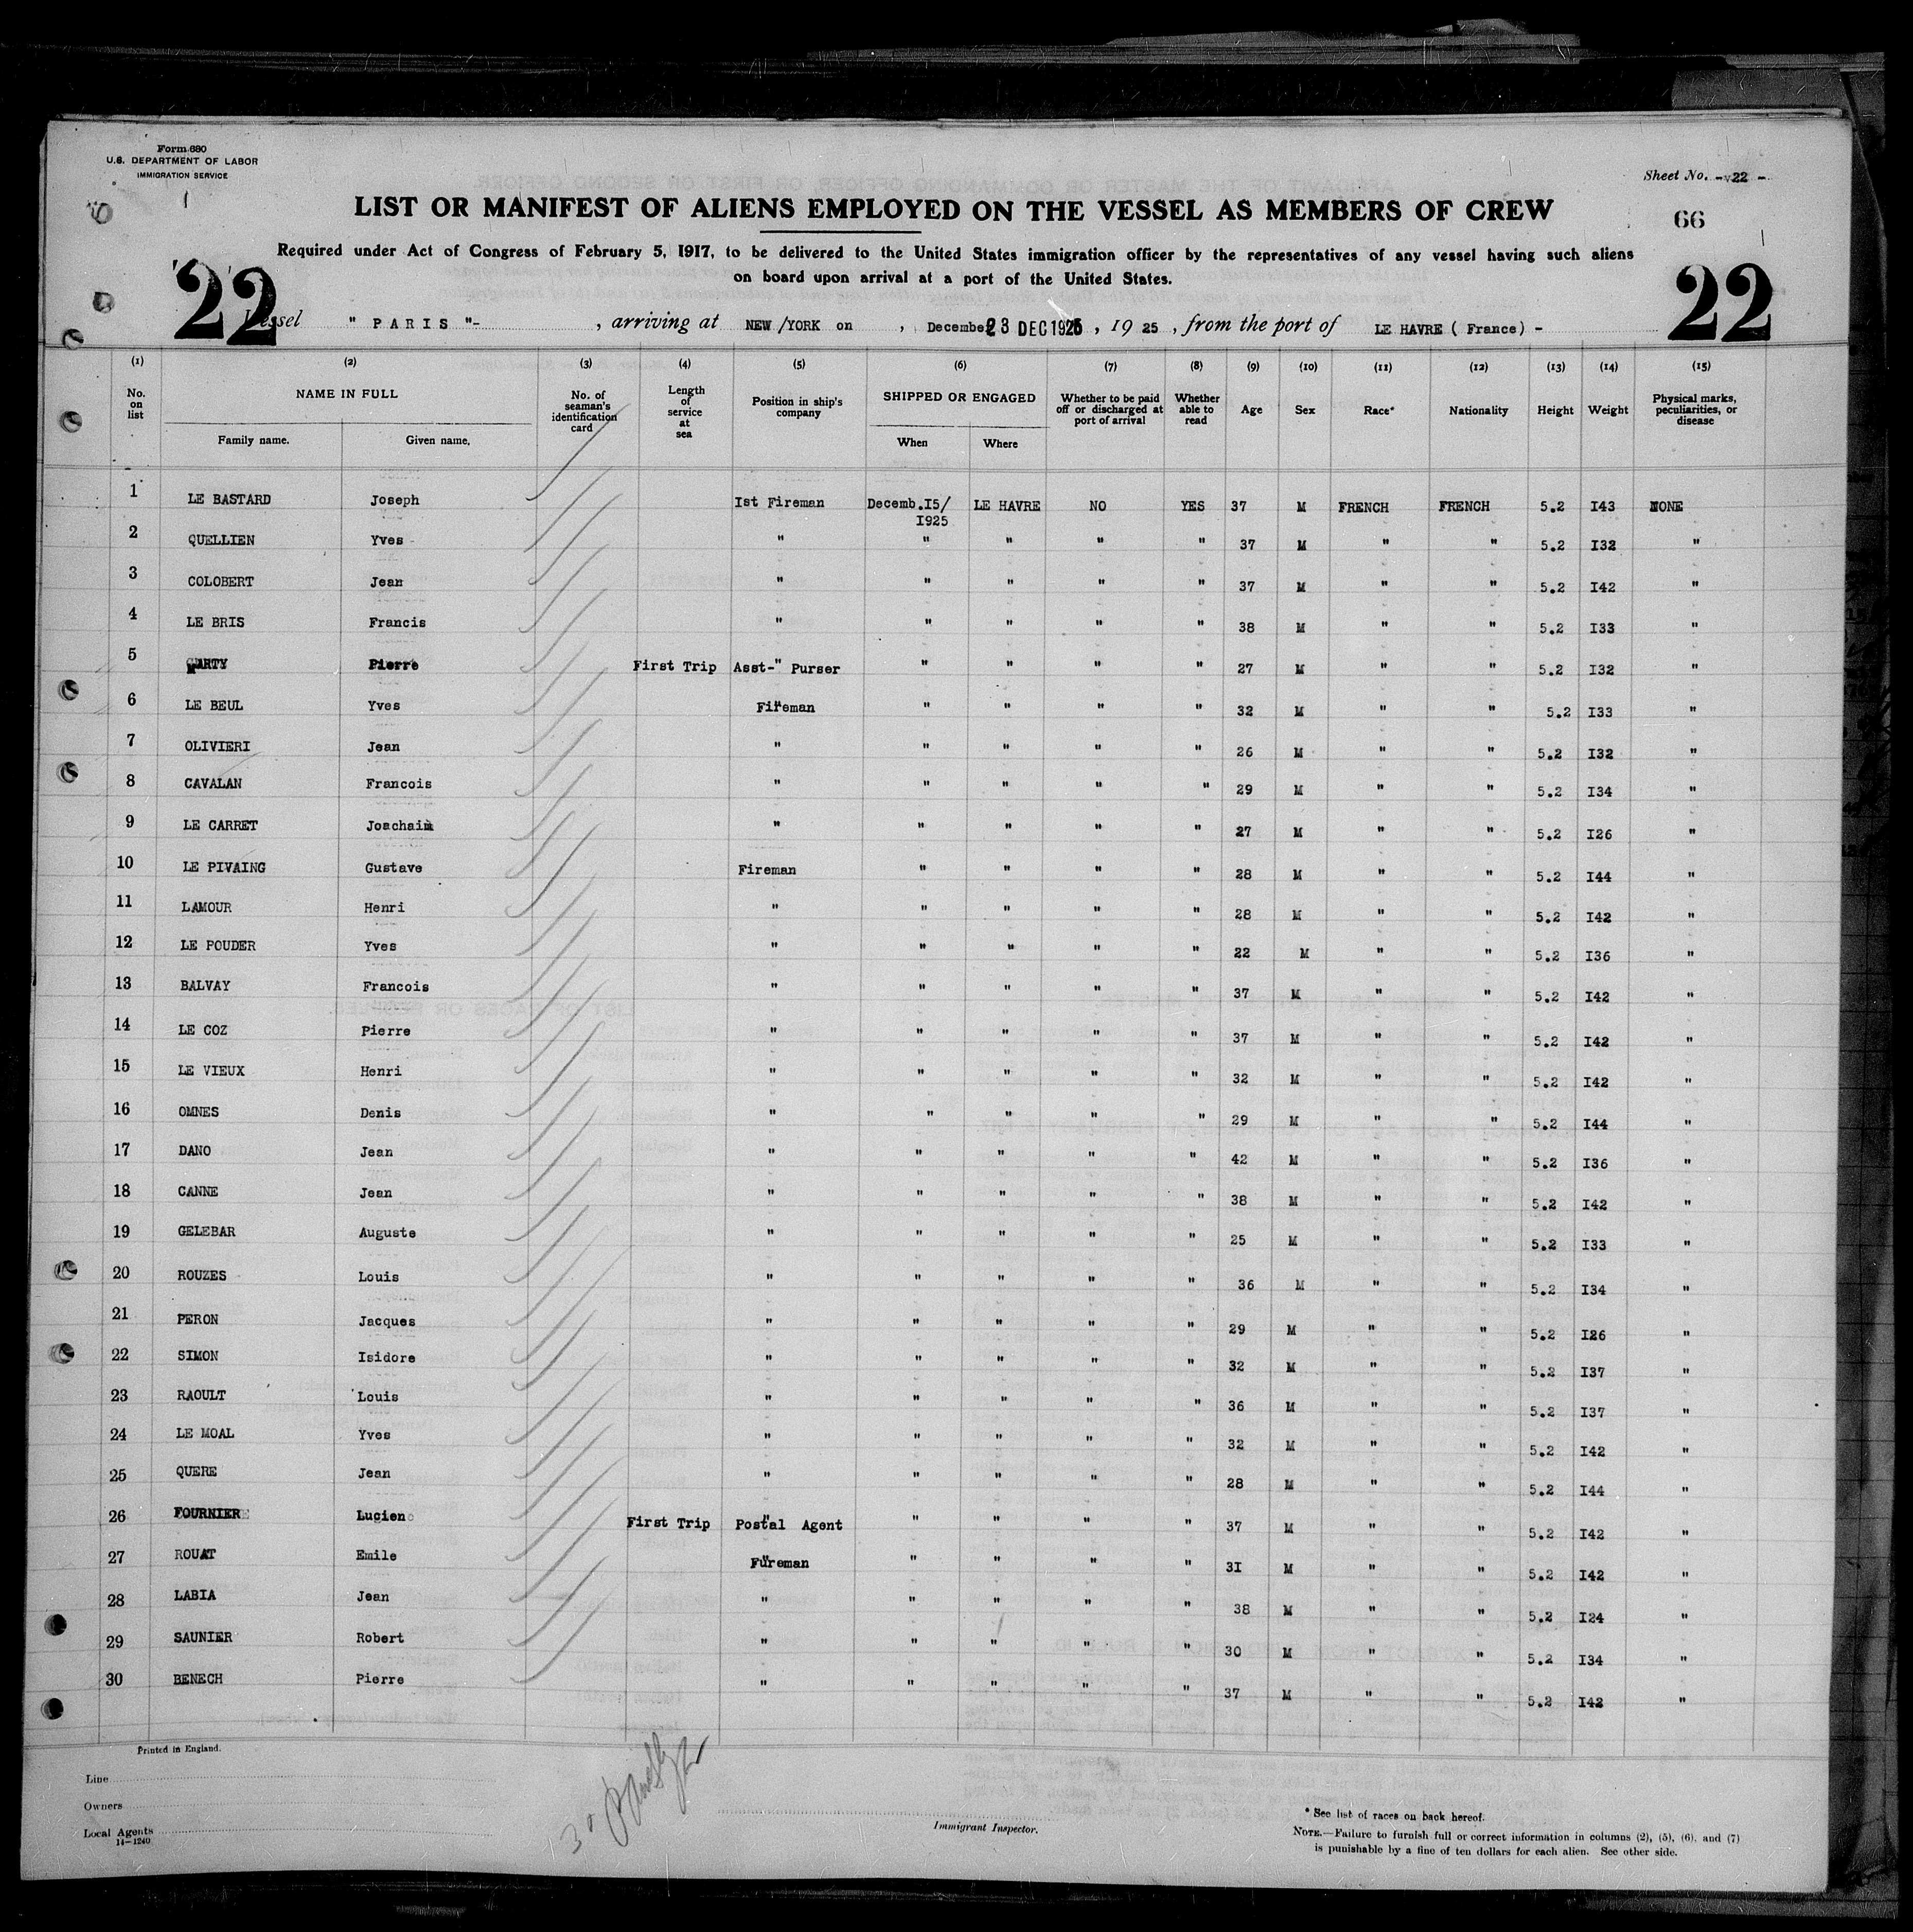 Form 680
U.S. DEPARTMENT OF LABOR
IMMIGRATION SERVICE
Sheet No. - 22 -
LIST OR MANIFEST OF ALIENS EMPLOYED ON THE VESSEL AS MEMBERS OF CREW
66
Required under Act of Congress of February 5, 1917, to be delivered to the United States immigration officer by the representatives of any vessel having such aliens
on board upon arrival at a port of the United States.
22 22
Vessel " PARIS "- , arriving at NEW /YORK on , December 23 DEC 1925 , 19 25 , from the port of LE HAVRE ( France) -
(1) (2) (3) (4) (5) (6) (7) (8) (9) (10) (11) (12) (13) (14) (15)
No. on list NAME IN FULL Family name. Given name. No. of seaman's identification card Length of service at sea Position in ship's company SHIPPED OR ENGAGED When Where Whether to be paid off or discharged at port of arrival Whether able to read Age Sex Race* Nationality Height Weight Physical marks, peculiarities, or disease
1 LE BASTARD Joseph Ist Fireman Decemb.I5/ I925 LE HAVRE NO YES 37 M FRENCH FRENCH 5.2 I43 NONE
2 QUELLIEN Yves " " " " " 37 M " " 5.2 I32 "
3 COLOBERT Jean " " " " " 37 M " " 5.2 I42 "
4 LE BRIS Francis " " " " " 38 M " " 5.2 I33 "
5 Pierre First Trip Asst-" Purser " " " " 27 M " " 5.2 I32 "
6 LE BEUL Yves Fireman " " " " 32 M " " 5.2 I33 "
7 OLIVIERI Jean " " " " " 26 M " " 5.2 I32 "
8 CAVALAN Francois " " " " " 29 M " " 5.2 I34 "
9 LE CARRET Joachaim " " " " " 27 M " " 5.2 I26 "
10 LE PIVAING Gustave Fireman " " " " 28 M " " 5.2 I44 "
11 LAMOUR Henri " " " " " 28 M " " 5.2 I42 "
12 LE POUDER Yves " " " " " 22 M " " 5.2 I36 "
13 BALVAY Francois " " " " " 37 M " " 5.2 I42 "
14 LE COZ Pierre " " " " " 37 M " " 5.2 I42 "
15 LE VIEUX Henri " " " " " 32 M " " 5.2 I42 "
16 OMNES Denis " " " " " 29 M " " 5.2 I44 "
17 DANO Jean " " " " " 42 M " " 5.2 I36 "
18 CANNE Jean " " " " " 38 M " " 5.2 I42 "
19 GELEBAR Auguste " " " " " 25 M " " 5.2 I33 "
20 ROUZES Louis " " " " " 36 M " " 5.2 I34 "
21 PERON Jacques " " " " " 29 M " " 5.2 I26 "
22 SIMON Isidore " " " " " 32 M " " 5.2 I37 "
23 RAOULT Louis " " " " " 36 M " " 5.2 I37 "
24 LE MOAL Yves " " " " " 32 M " " 5.2 I42 "
25 QUERE Jean " " " " " 28 M " " 5.2 I44 "
26 FOURNIER Lucien First Trip Postal Agent " " " " 37 M " " 5.2 I42 "
27 ROUAT Emile Fureman " " " " 3I M " " 5.2 I42 "
28 LABIA Jean " " " " " 38 M " " 5.2 I24 "
29 SAUNIER Robert " " " " " 30 M " " 5.2 I34 "
30 BENECH Pierre " " " " " 37 M " " 5.2 I42 "
Printed in England.
Line
Owners
Local Agents
14-1240
30
Immigrant Inspector.
* See list of races on back hereof.
NOTE.—Failure to furnish full or correct information in columns (2), (5), (6), and (7)
is punishable by a fine of ten dollars for each alien. See other side.